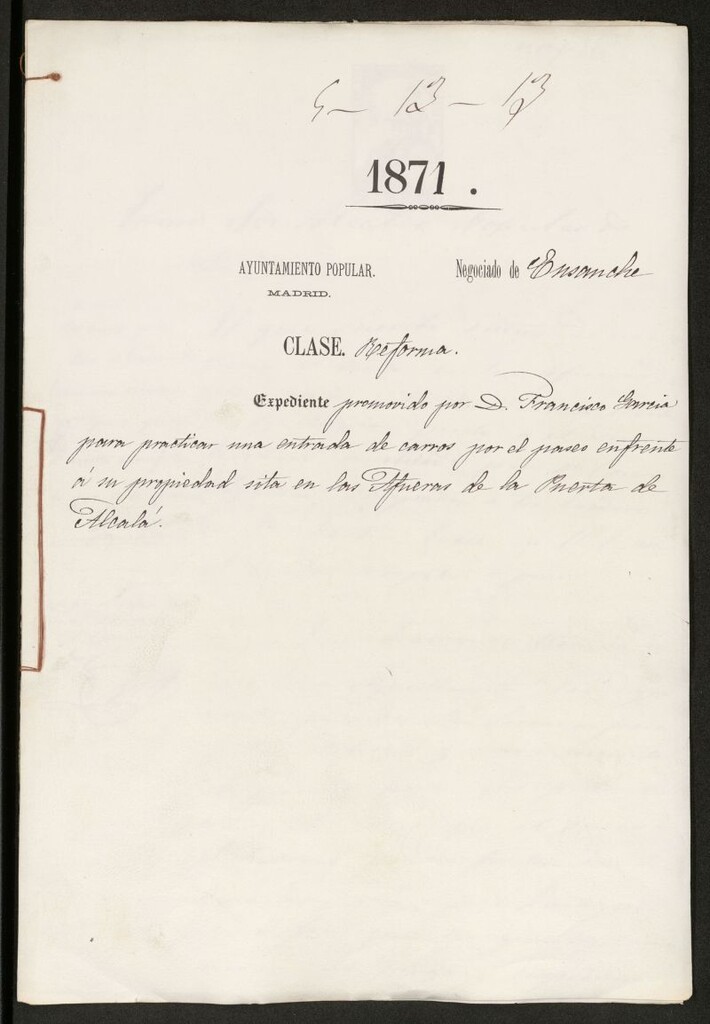 5 - 13 - 13
1871.
AYUNTAMIENTO POPULAR.
MADRID.
Negociado de Ensanche
CLASE. Reforma.
Expediente promovido por D. Francisco Garcia
para practicar una entrada de carros por el paseo enfrente
á su propiedad sita en las Afueras de la Puerta de
Alcalá.